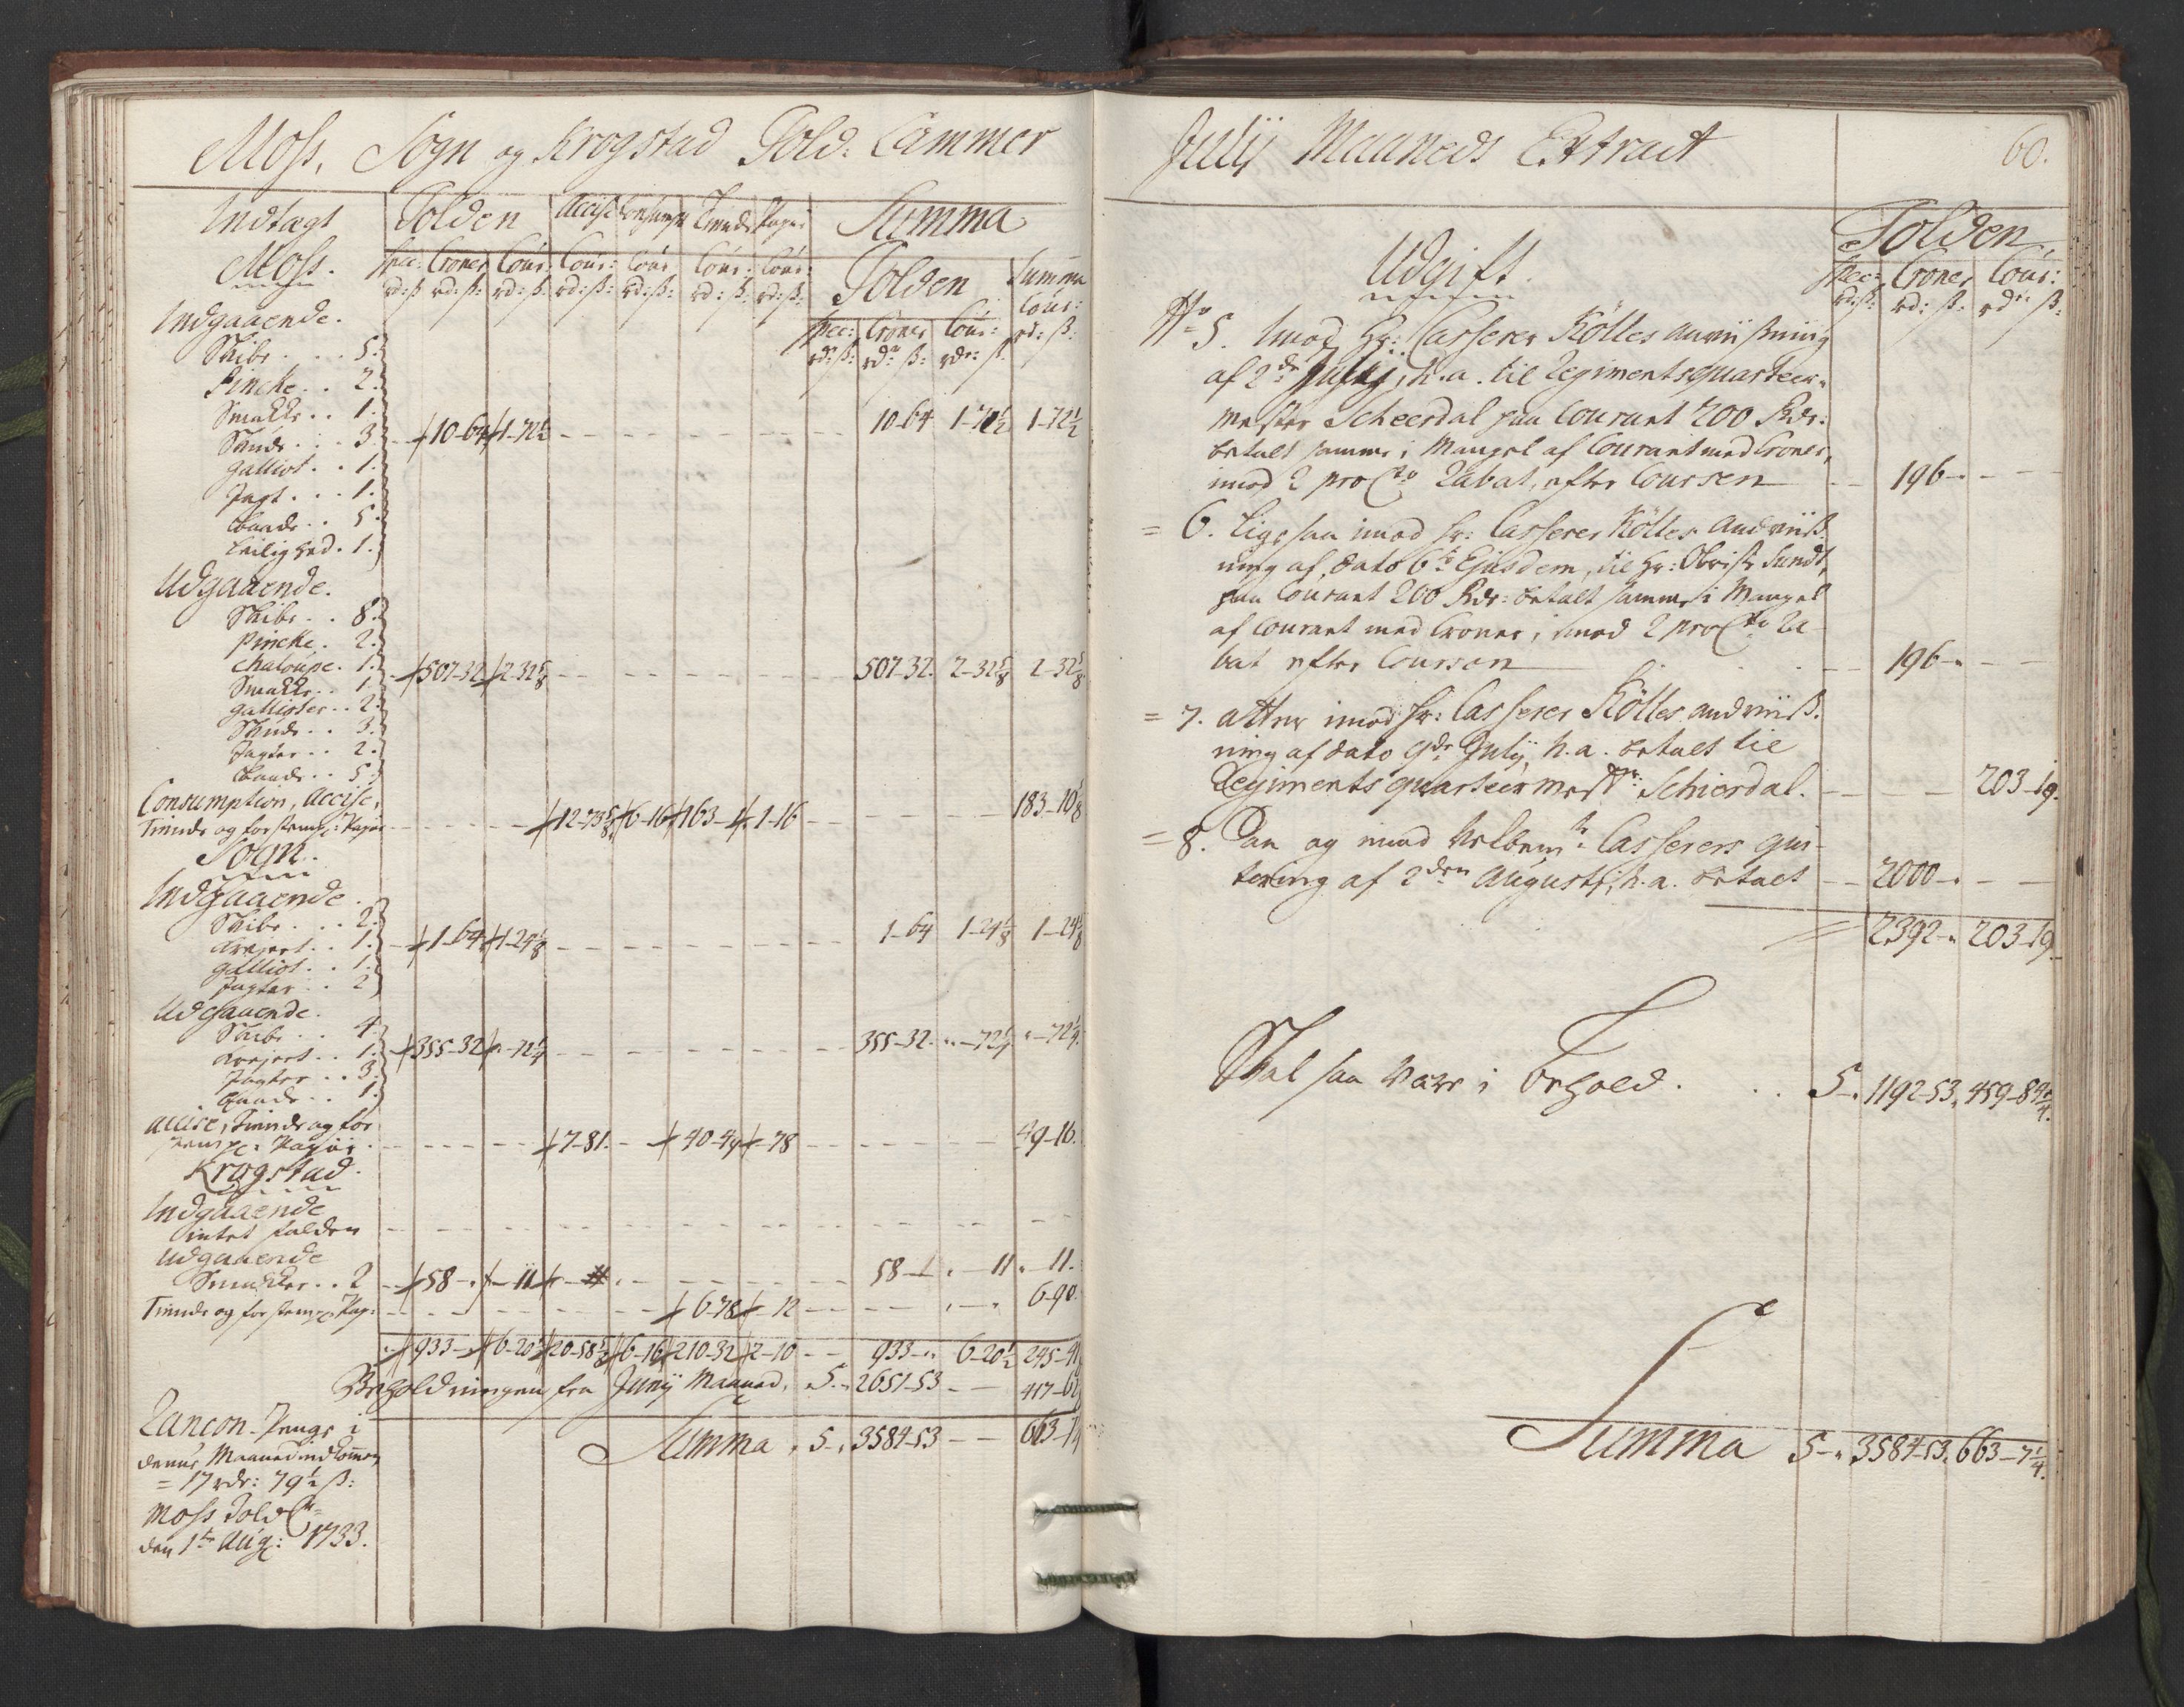 Moss, Sogn og Krogstad Told: Cammer
Indtægt Tolden Accise Consumpt: Tiende Papiir Summa
Moss. Spec: Croner Cour: Cour: Cour Cour: Cour: Tolden Summa
rd: ß rd: ß: rd: ß: rd: ß: rd: ß: rd: ß: rd: ß: Cour:
Spec: Croner Cour: rd: ß:
rd: ß: rdr ß: rdr: ß:
Indgaaende.
Skibe . . . 5.
Pincke . . 2.
Smakke . . 1.
Skude . . . 3. 10-64 1-72½ 10-64 1-72½ 1-72½
Galliot . . 1.
Jagt . . . 1.
Baade . . 5.
Leilighed . 1.
Udgaaende.
Skibe . . 8.
Pincke . 2.
Chaloupe . 1. 507-32 2-32⅝ 507-32. 2-32⅝ 2-32⅝
Smakke . . 1.
Gallioter . . 2.
Skude . . 3.
Jagter . . 2.
Baade . . 5.
Consumption, Accise,
Tiende og forstempl: Papiir 12-73⅝ 6-16 163-1 1-16 183-10⅝
Sogn.
Indgaaende.
Skibe . . . 2.
Krejert . . 1. 1-64 1-24⅛ 1-64 1-24⅛ 1-24⅛
Galliot . . 1.
Jagter . . 2
Udgaaende.
Skibe . . 4.
Krejert . . 1. 355-32 "-72¼ 355-32. "-72¼ "-72¼.
Jagter . . 3.
Baade . . 1.
Accise, Tiende og for
stempl: Papiir . 7-81. 40-49 -78 49-16.
Krogstad.
Indgaaende
intet falden
Udgaaende
Smakker . . 2 58-" -11 58-" "-11 "-11.
Tiende og forstempl: Pap: 6-78 -12 6-90
933-" 6-20½ 20-58⅝ 6-16 210-32 2-10 933-" 6-20½ 245-41
Beholdningen fra Junij Maaned, 5-" 2651-53 - - 417-62
Summa 5-" 3584-53 - - 663-7¼
Rancon-Penge i
denne Maaned indkommen
= 17 rdr: 79½ ß:
Moss Told C:
den 1te Aug: 1733.
Julij Maaneds Extract 60.
Udgift. Tolden
Spec: Croner Cour:
rd: ß: rd: ß: rdr ß:
No 5. Imod Hr: Casserer Költes anviißning
af 2de Julij, h.a. til Regimentsquarteer-
mester Scheerdal paa Courant 200 Rdr:
betalt samme i Mangel af Courant med Croner,
imod 2 pro Cto Rabat, efter Coursen 196-" -
= 6. Lige saa imod Hr: Casserer Költes Andviiß-
ning af dato 6te Ejusdem, til Hr: Obrist Sundt,
paa Courant 200 Rdr: betalt samme i Mangel
af Courant med Croner, imod 2 pro Cto Ra-
bat efter Coursen 196-"
= 7. Atter imod Hr: Casserer Költes andviiß-
ning af dato 9de Julij, h.a. betalt til
Regimentsquarteermestr: Schierdal. 203-19.
= 8. Paa og imod Velbemte Casserers qui-
tering af 2den Augusti, h.a. betalt 2000-"
2392-" 203-19.
Skal saa være i Behold. . . 5-" 1192-53. 459-84¼.
Summa 5-" 3584-53. 663-7¼.